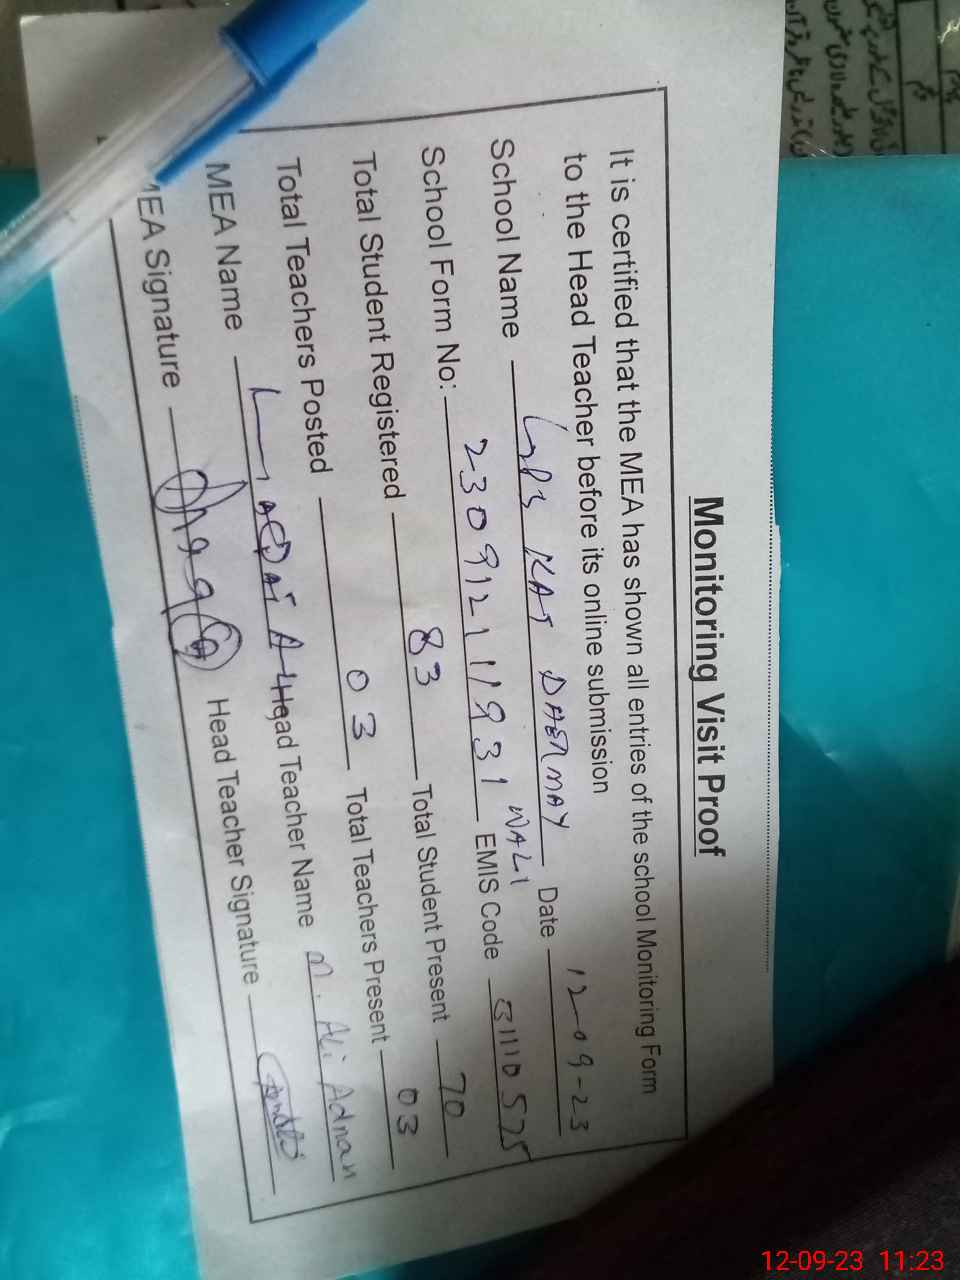 Monitoring Visit Proof
It is certified that the MEA has shown all entries of the school Monitoring Form
to the Head Teacher before its online submission
School Name GPS KAT DAERMAY WALI Date 12-09-23
School Form No: 2309121 11931 EMIS Code 31110575
Total Student Registered 83 Total Student Present 70
Total Teachers Posted 03 Total Teachers Present 03
MEA Name Head Teacher Name M. Ali Adnan
MEA Signature Head Teacher Signature
12-09-23 11:23